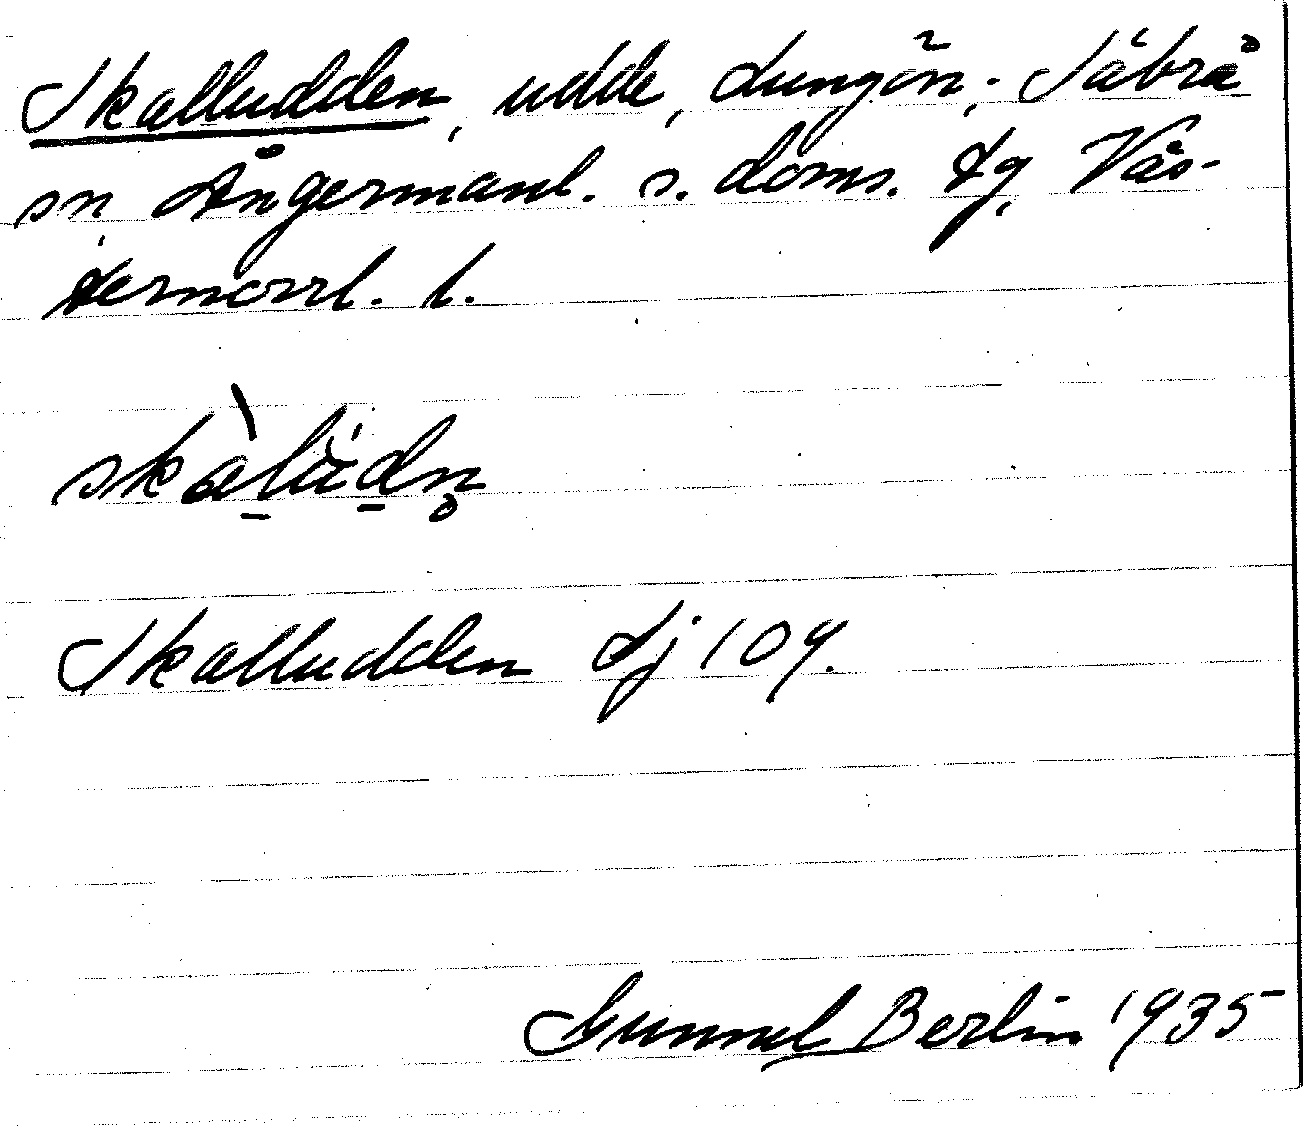 Skalludden, udde, Lungön, Säbrå
sn, Ångermanl. s. doms. tg, Väs-
ternorrl. l.
skàludn̥
Skalludden Lj 109.
Gunnel Berlin 1935